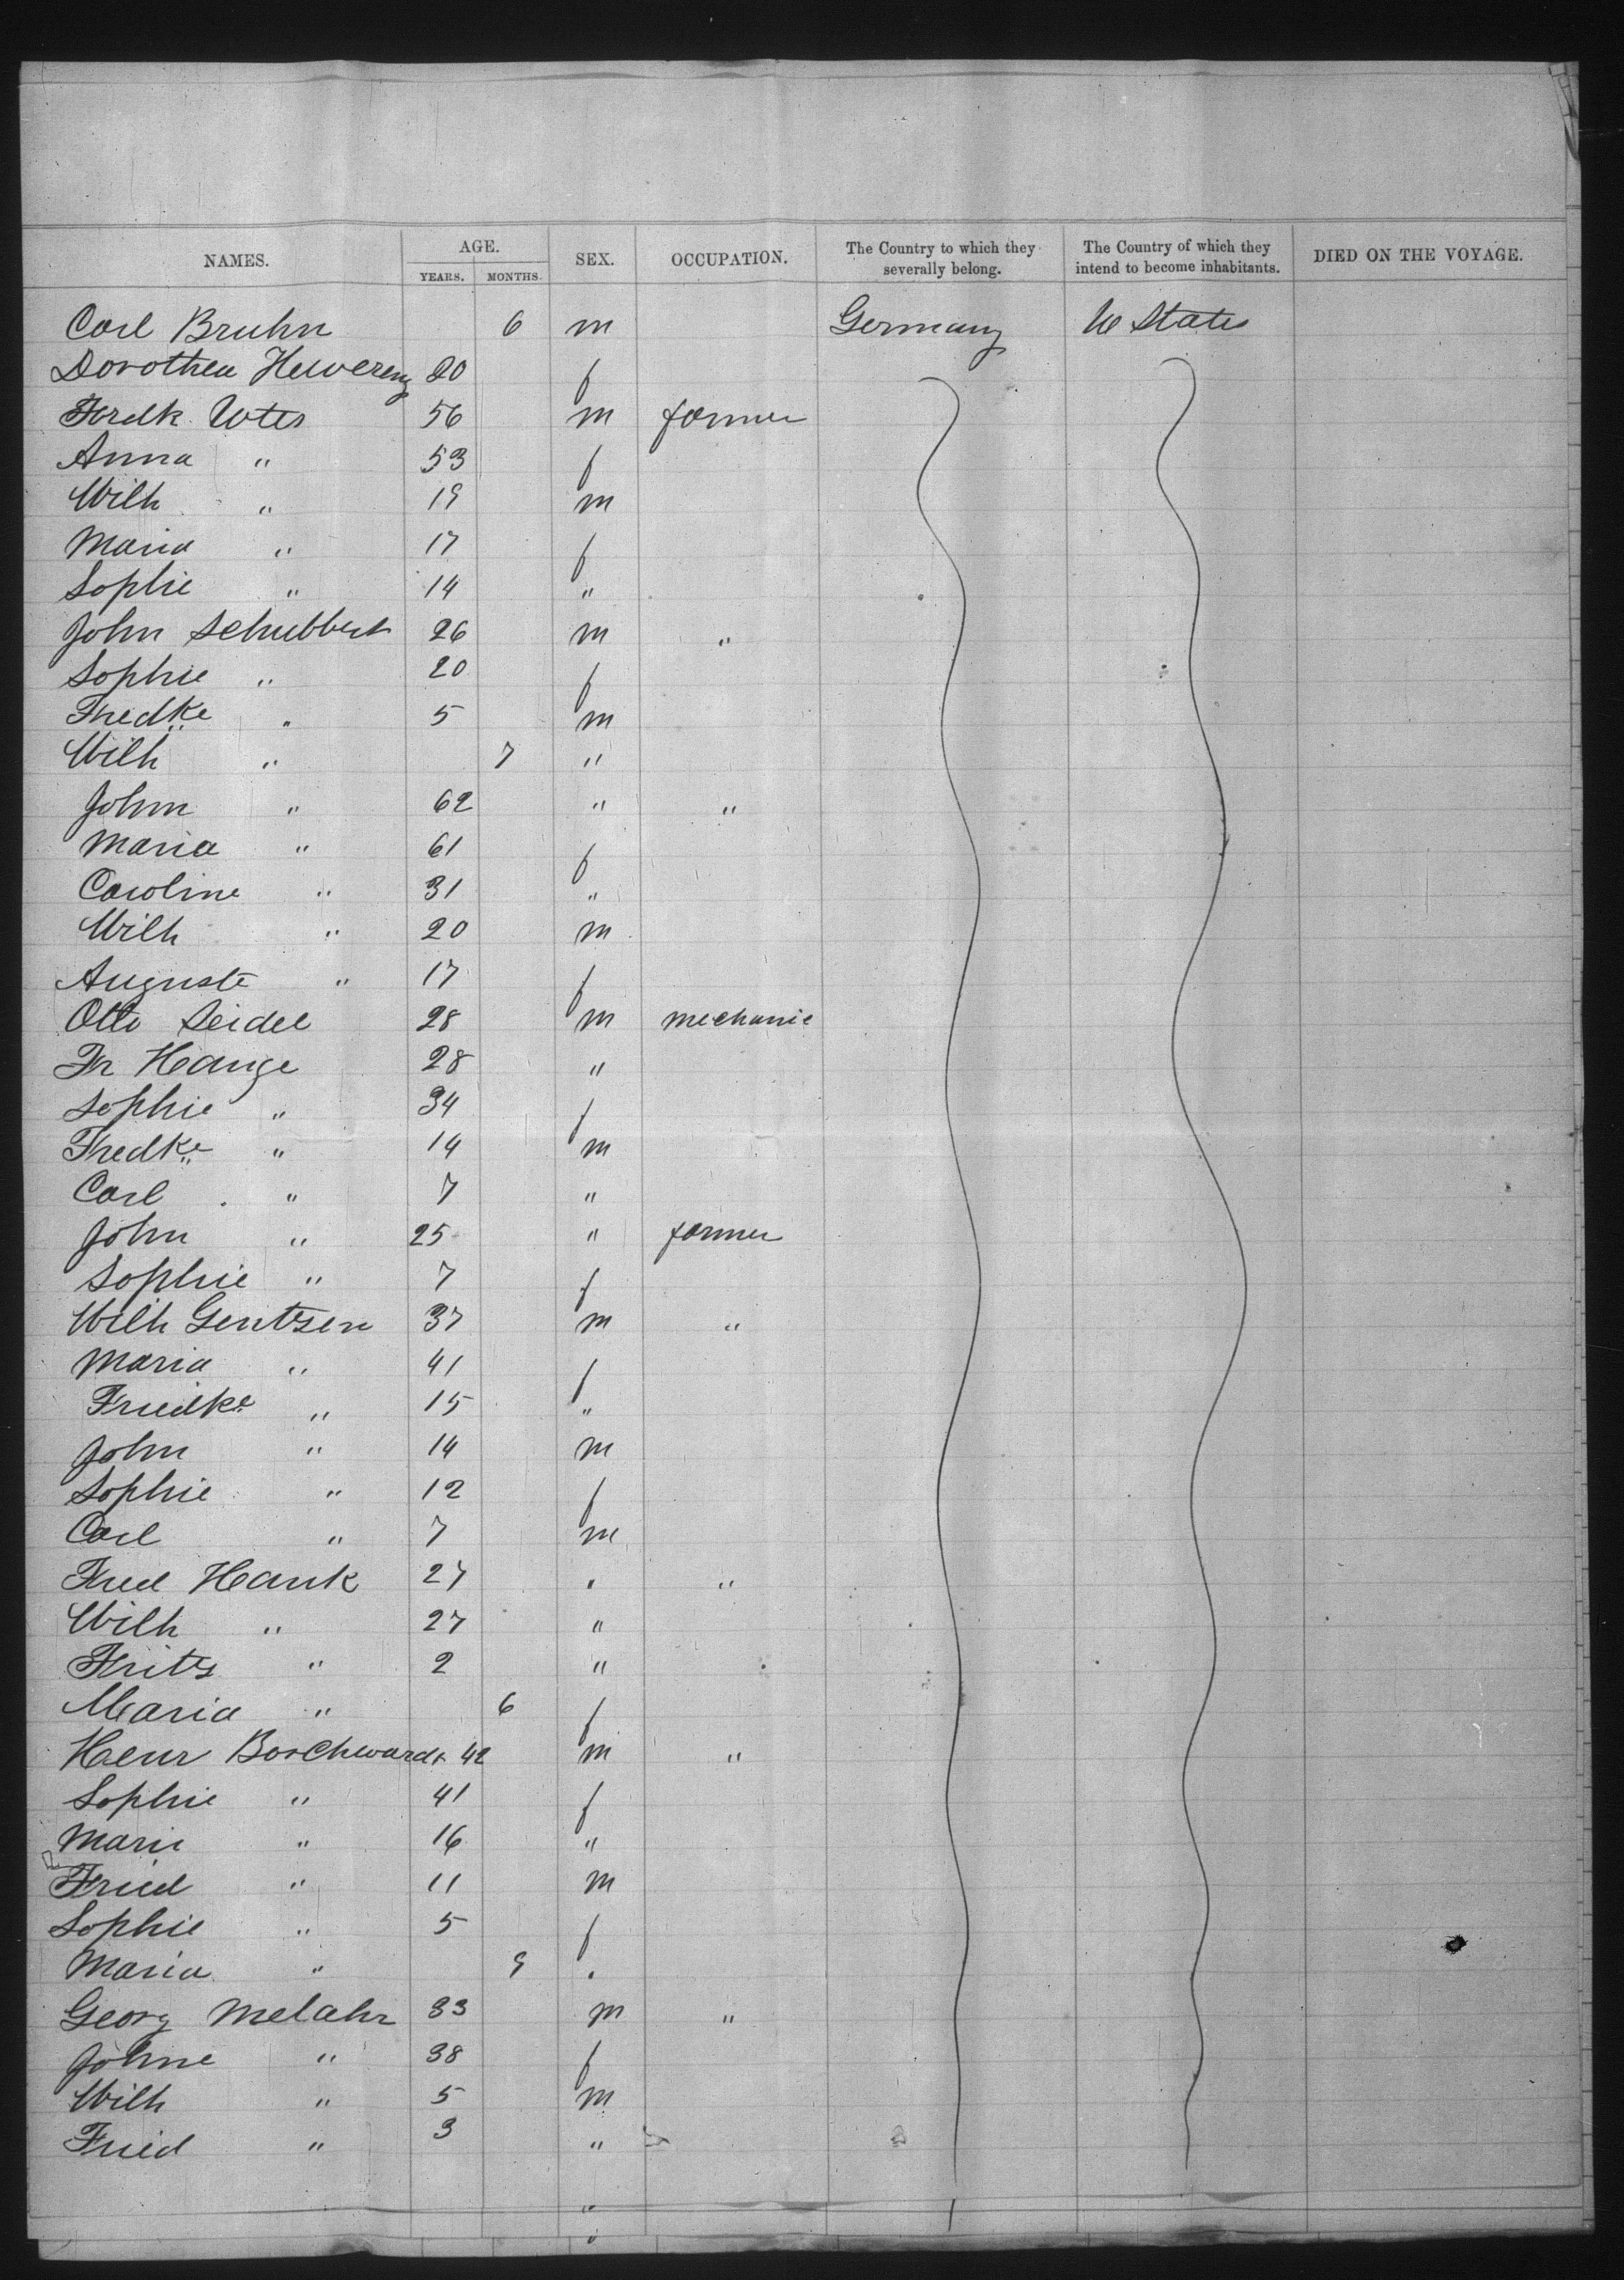 NAMES. AGE. YEARS. MONTHS. SEX. OCCUPATION. The Country to which they severally belong. The Country of which they intend to become inhabitants. DIED ON THE VOYAGE.
Carl Bruhn 6 m Germany U States
Dorothea 20 f
Fredk Utes 56 m farmer
Anna " 53 f
Wilh " 19 m
Maria " 17 f
Sophie " 14 "
John Schubbert 26 m "
Sophie " 20 f
Fredke " 5 m
Wilh " 7 "
John " 62 " "
Maria " 61 f
Caroline " 31 "
Wilh " 20 m
Auguste " 17 f
Otto Seidel 28 m mechanic
Fr Hange 28 "
Sophie " 34 f
Fredke " 14 m
Carl " 7 "
John " 25 " farmer
Sophie " 7 f
Wilh Gentzen 37 m "
Maria " 41 f
Friedke " 15 "
John " 14 m
Sophie " 12 f
Carl " 7 m
Fred Hank 27 " "
Wilh " 27 "
Fritz " 2 "
Maria " 6 f
Henr Borchwardt 42 m "
Sophie " 41 f
Marie " 16 "
Fried " 11 m
Sophie " 5 f
Maria " 9 "
Georg Melahr 33 m "
Johne " 38 f
Wilh " 5 m
Fried " 3 "